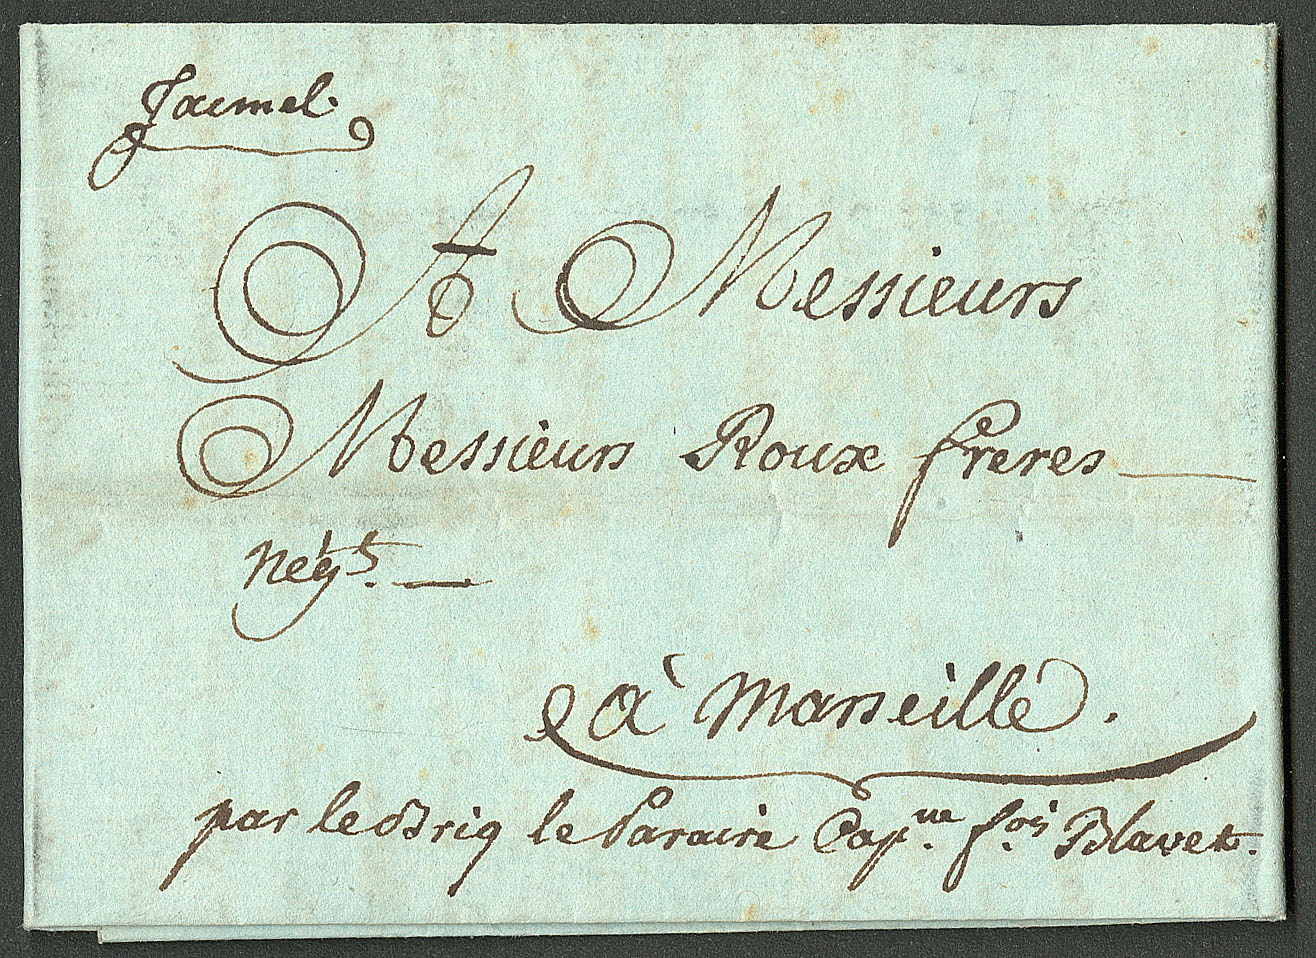 Jacmel.
A Messieurs
Messieurs Roux freres
Nég.ts
à Marseille.
par le Brig le Cap.ne f.ois Blavet.